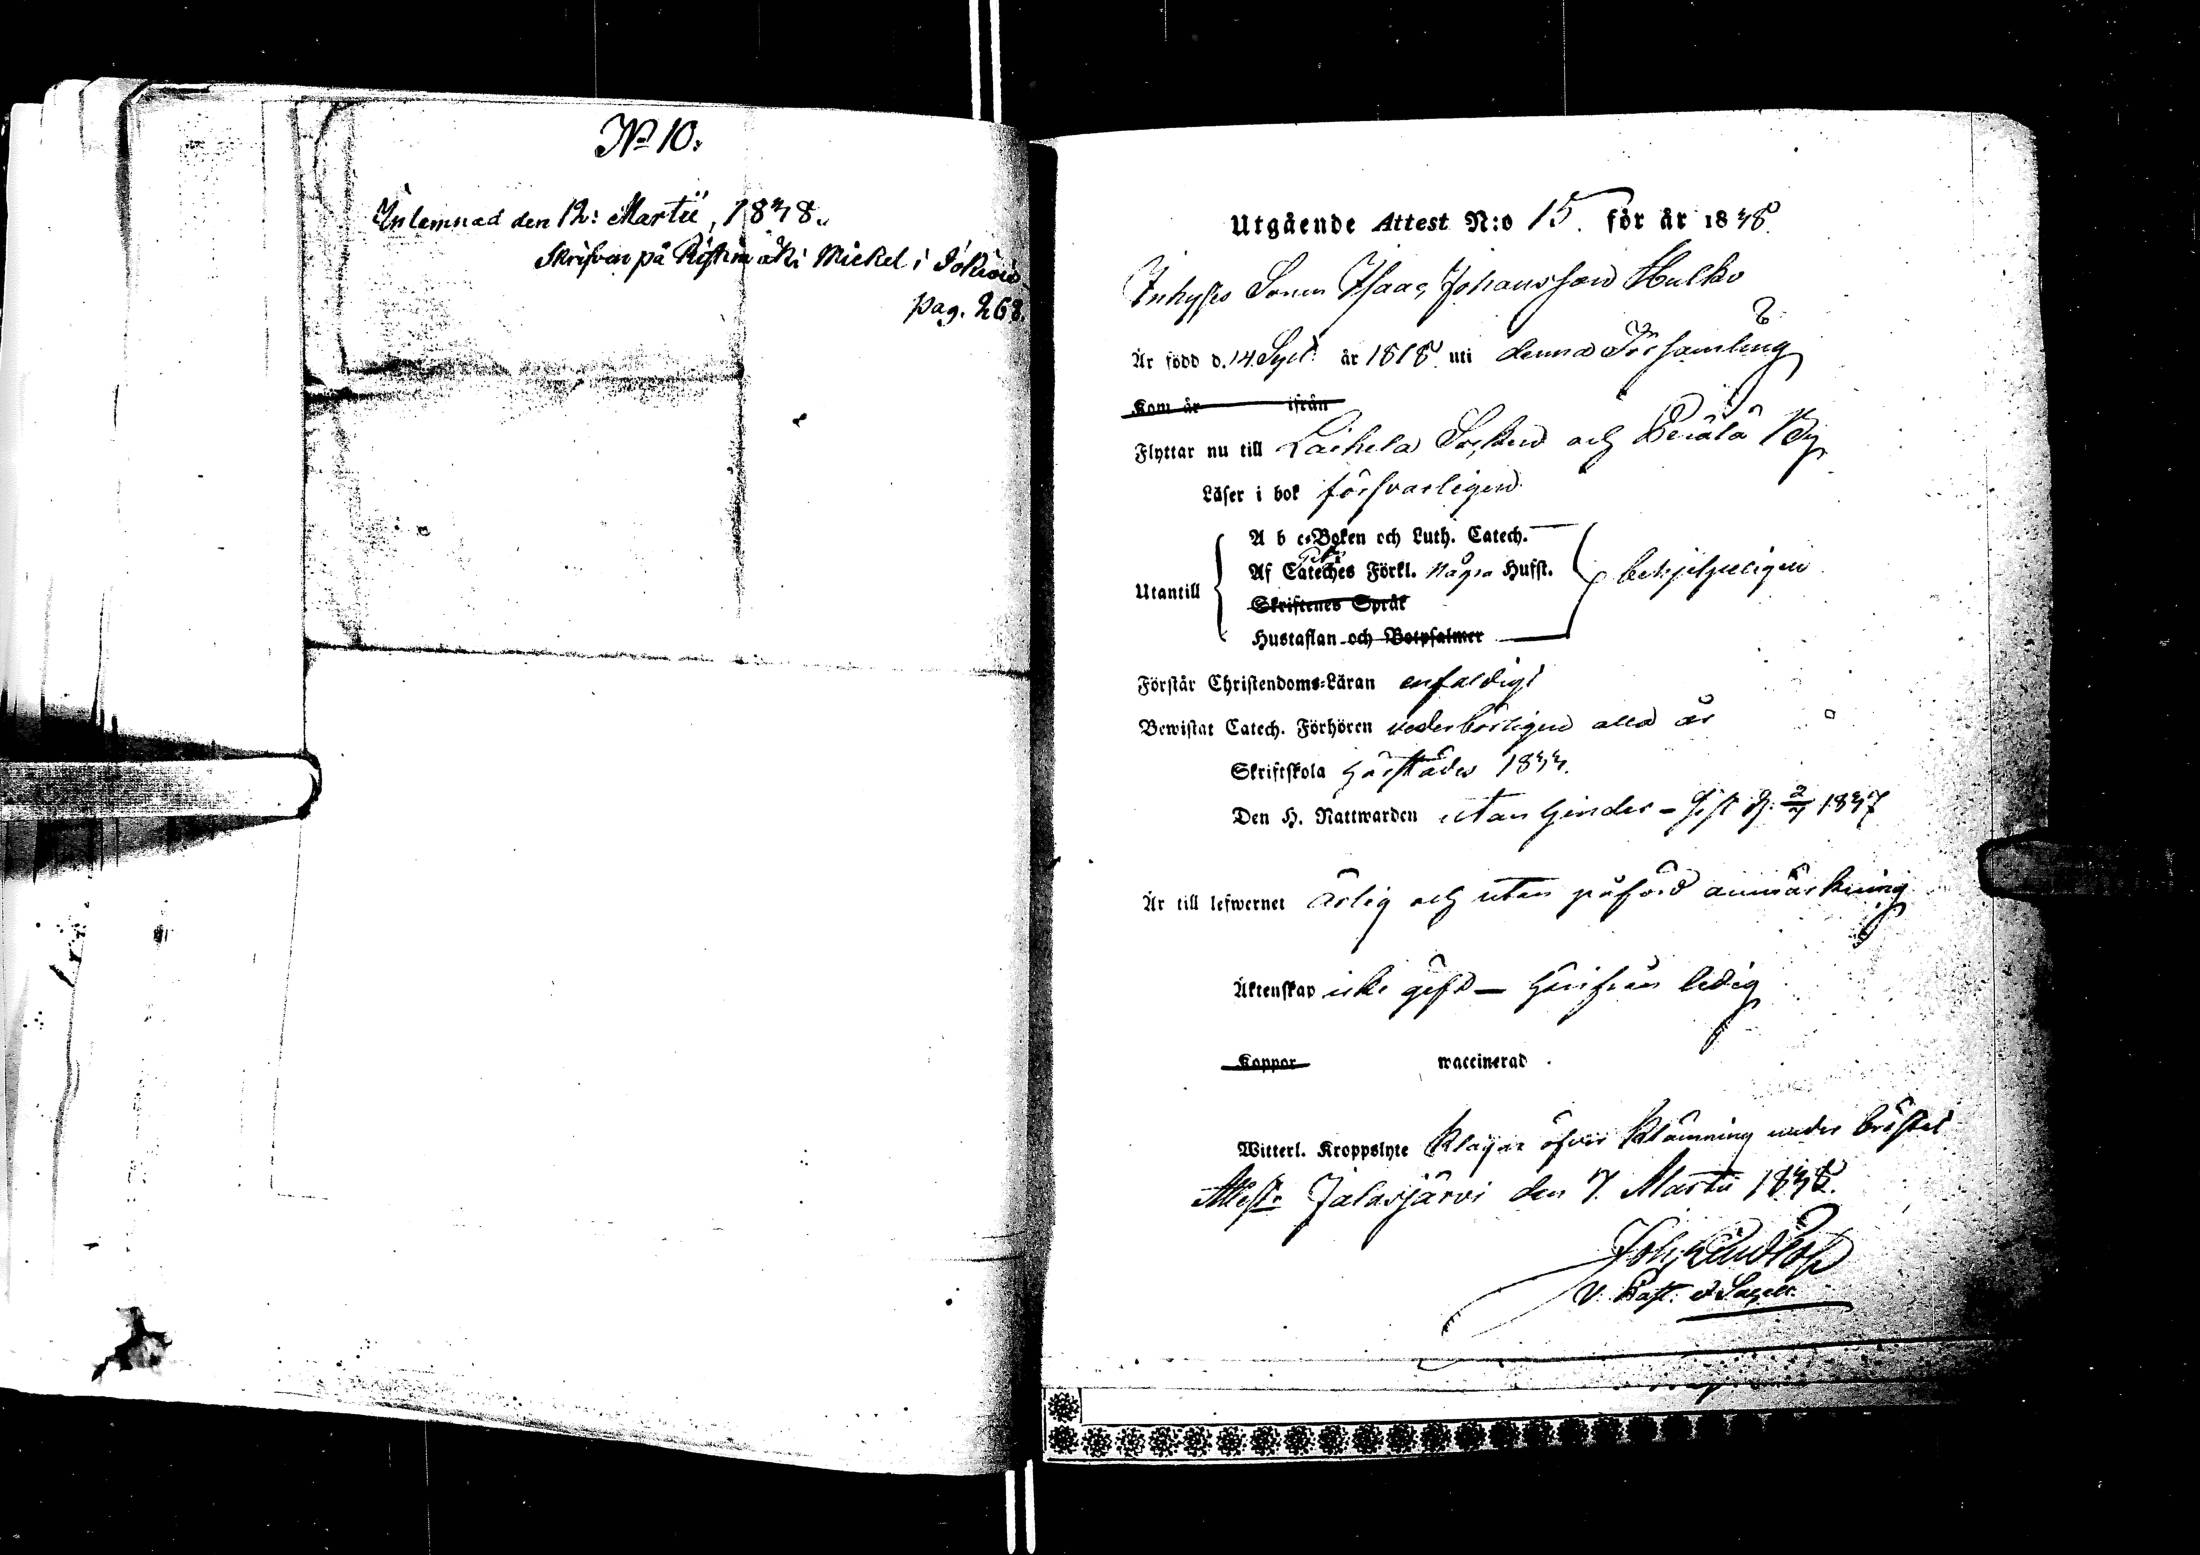 No 10.
Inlemnad den 12: Martii, 1838.
Skrifven på Mickel i Jokiois
pag. 268.
Utgående Attest N:o 15. för år 1838.
Inhyses Sonen Isaac Johansson Hulko
Är född d. 14 Sept. år 1818. uti denna Församling
Kom år ifrån
Flyttar nu till Laihela Socken och Perälä By
Läser i bok försvarligen
A b c-Boken och Luth. Catech.
Af Cateches Förkl. några Hufst.
Utantill behjelpeligen
Skriftenes Språk
Hustaflan och Botpsalmer
Förstår Christendoms-Läran enfaldigt
Bewistat Catech. Förhören vederbörligen alla år
Skriftskola härstädes 1833.
Den H. Nattwarden utan hinder - sist d. 2/7 1837
Är till lefwernet ärlig och utan påförd anmärkning
Äktenskap icke gift — härifrån ledig
Koppor waccinerad
Witterl. Kroppslyte klagar öfver klämning under bröstet
Attest. Jalasjärvi den 7. Martii 1838.
V. Past. Sacell.